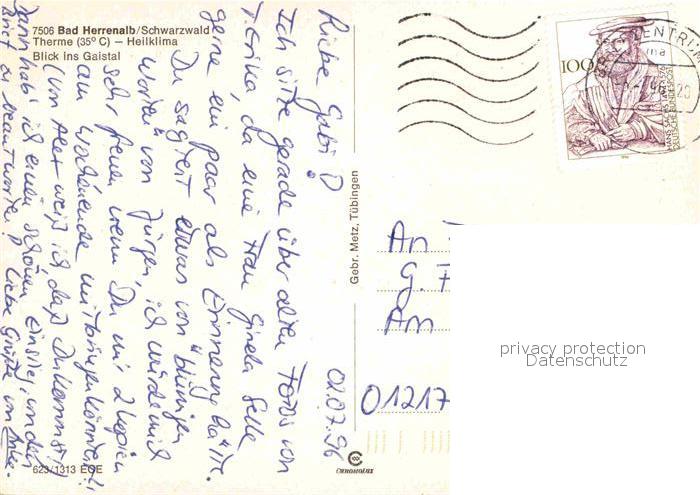 7506 Bad Herrenalb/Schwarzwald
Therme (35° C) — Heilklima
Blick ins Gaistal
02.07.96
Liebe Gabi!
Ich sitze gerade über alten Fotos von
T. Erika, da eine Frau Gisela
gerne ein paar als Erinnerung hätte.
Du sagtest etwas von
von Jürgen, ich würde mich
sehr freuen wenn Du mir 2 Kopien
am Wochenende mitbringen könntest!
(Von Alex weiß ich, daß Du kommst)
Dann hab' ich einen schönen Einstieg, um den
Brief zu beantworten! Liebe Grüße von
623/1313 EOE
Gebr. Metz, Tübingen
CHROMOLUX
100
DEUTSCHE BUNDESPOST
An
G. F
Am
01217
privacy protection
Datenschutz